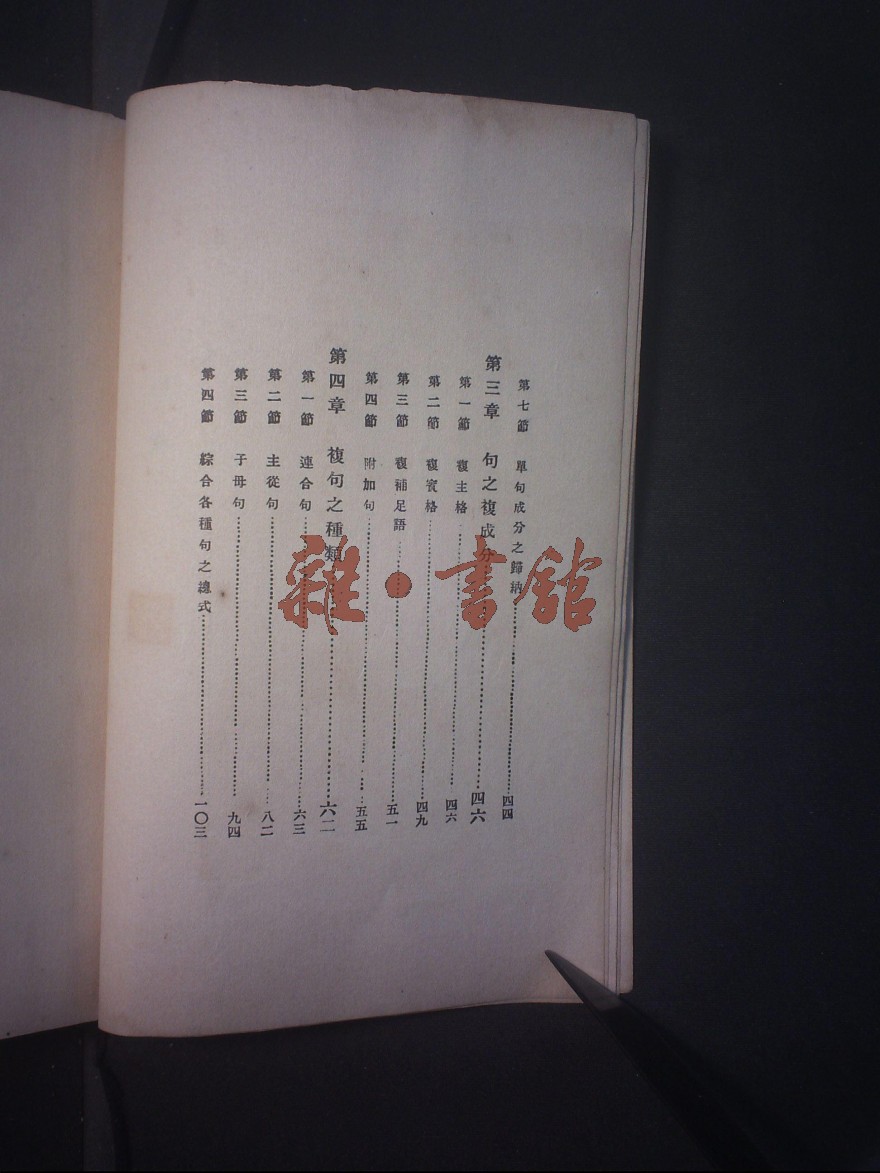 第七節 單句成分之歸納 四四
第三章 句之複成分 四六
第一節 複主格 四六
第二節 複賓格 四九
第三節 複補足語 五一
第四節 附加句 五五
第四章 複句之種類 六二
第一節 連合句 六三
第二節 主從句 八二
第三節 子母句 九四
第四節 綜合各種句之總式 一〇三
雜·書館